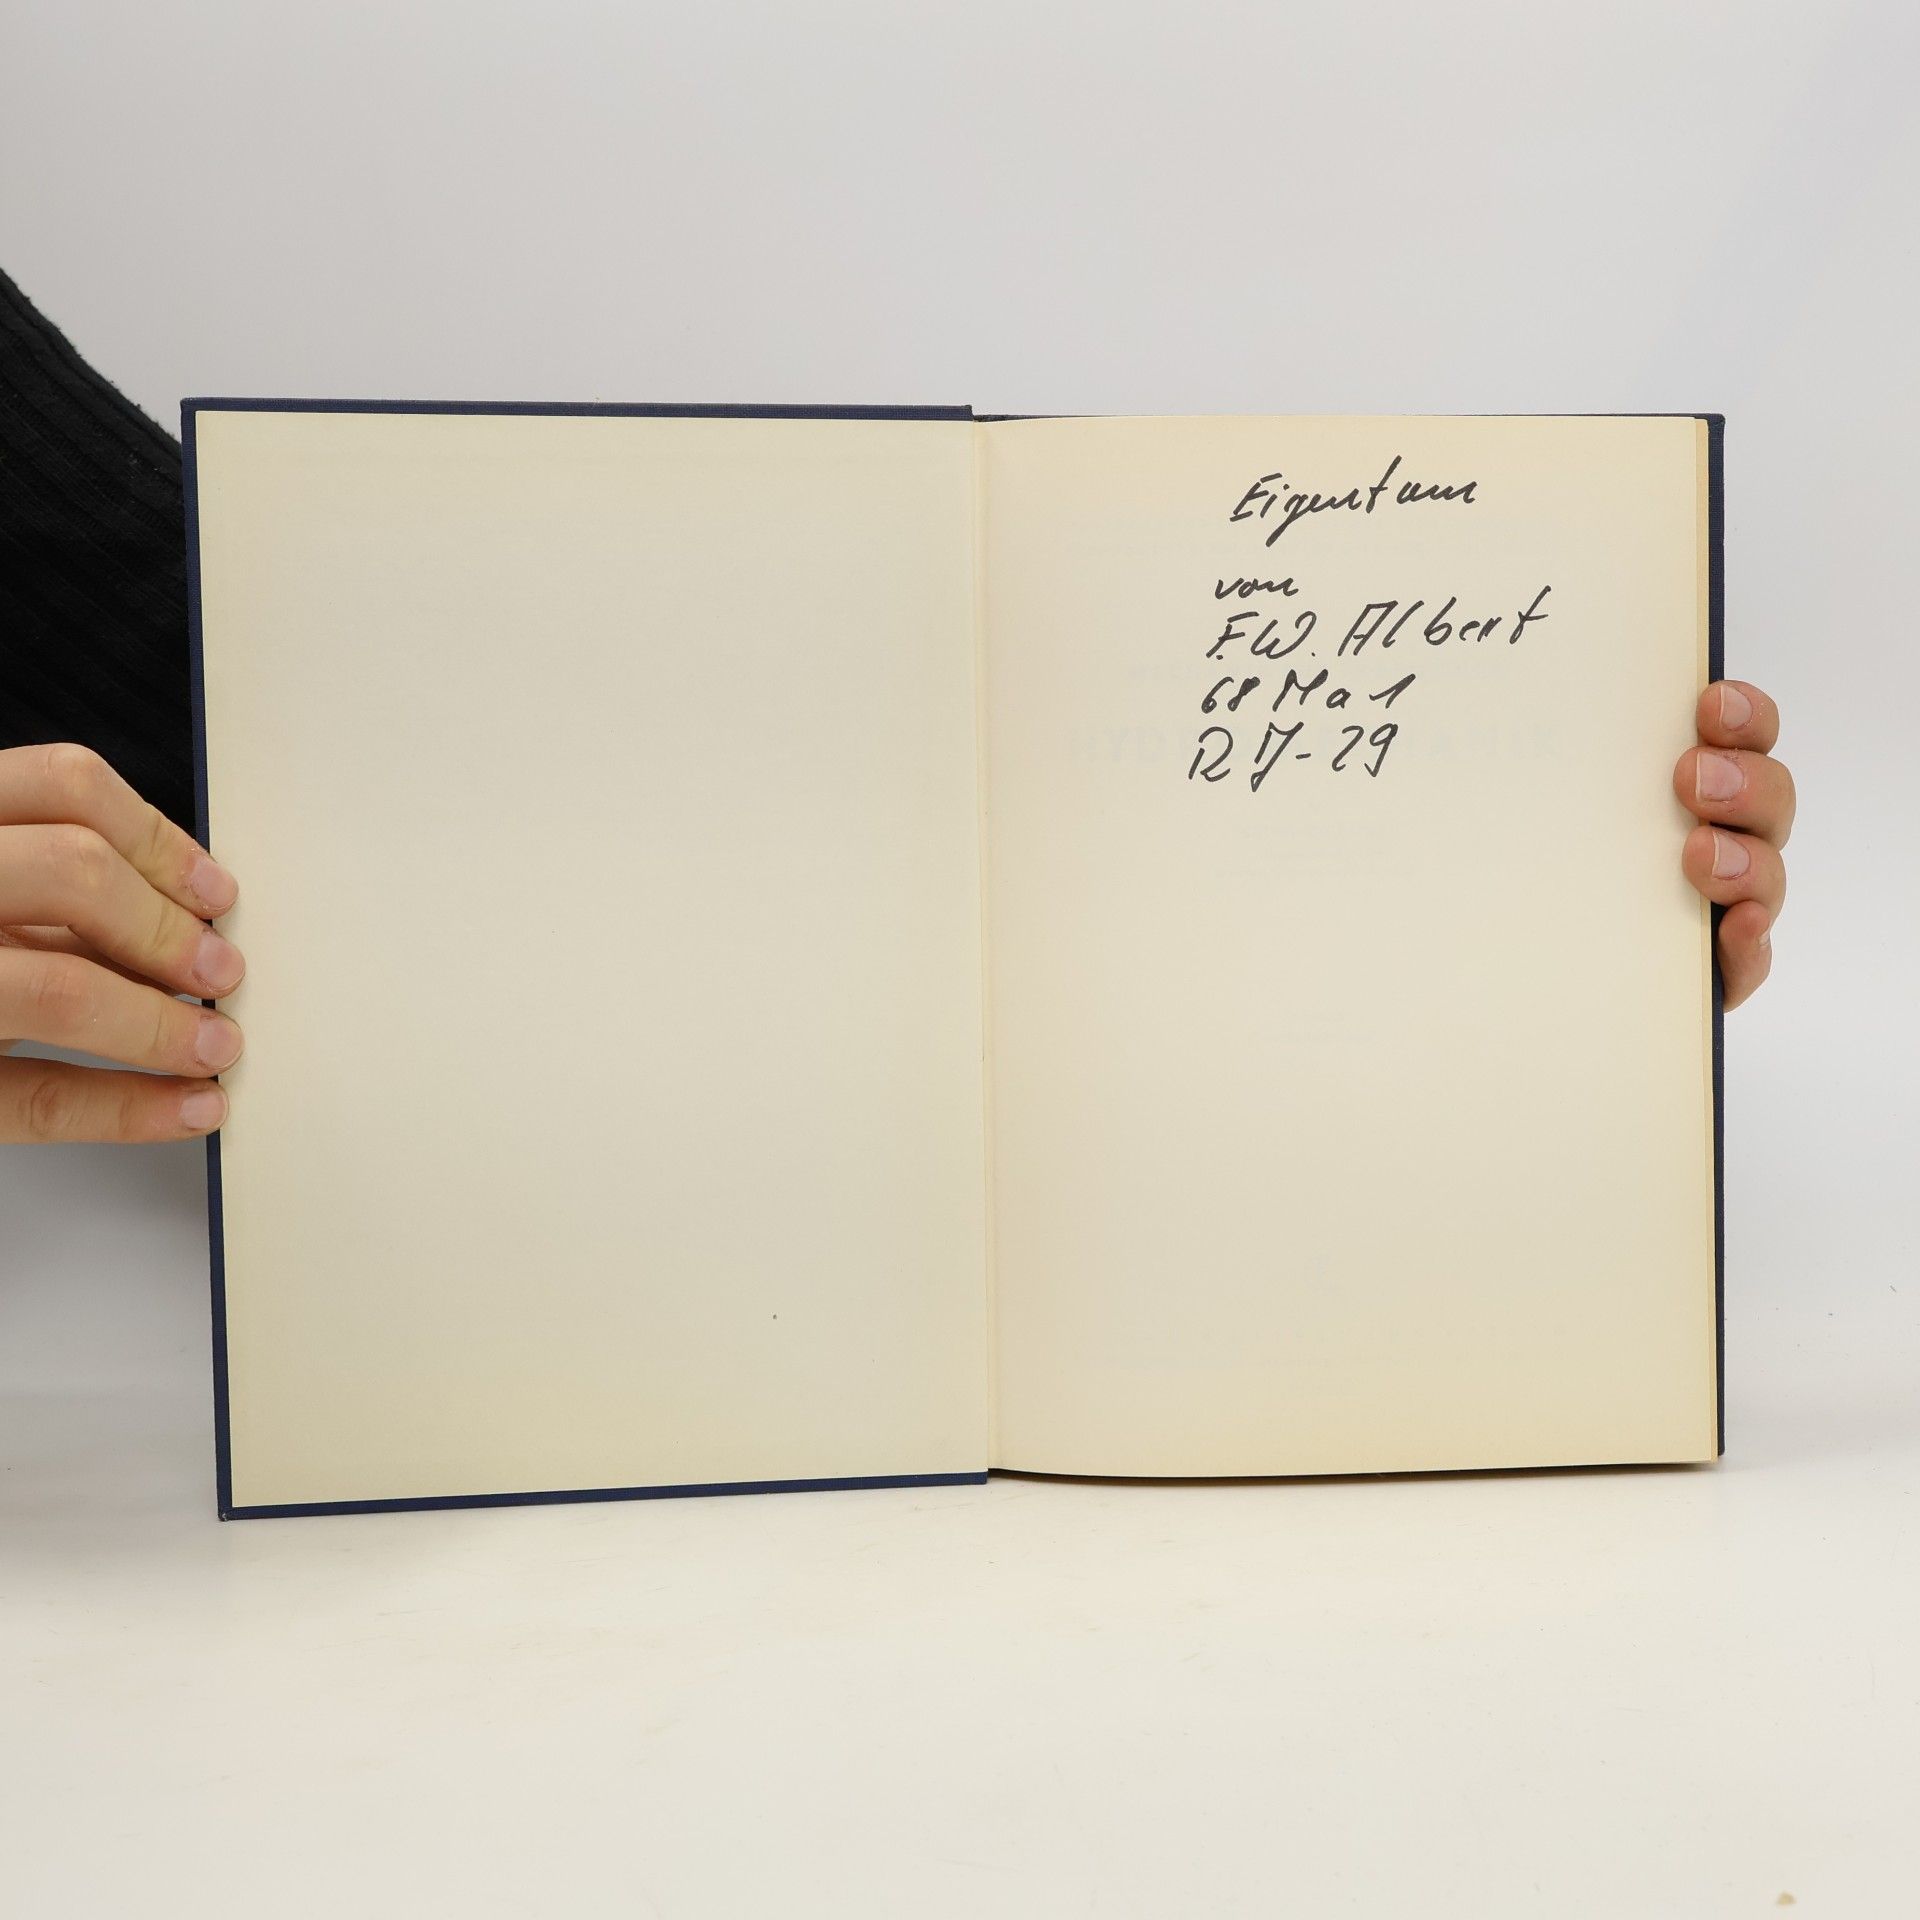 Eigentum
von
F.W. Albert
68 Ma 1
R 7-29